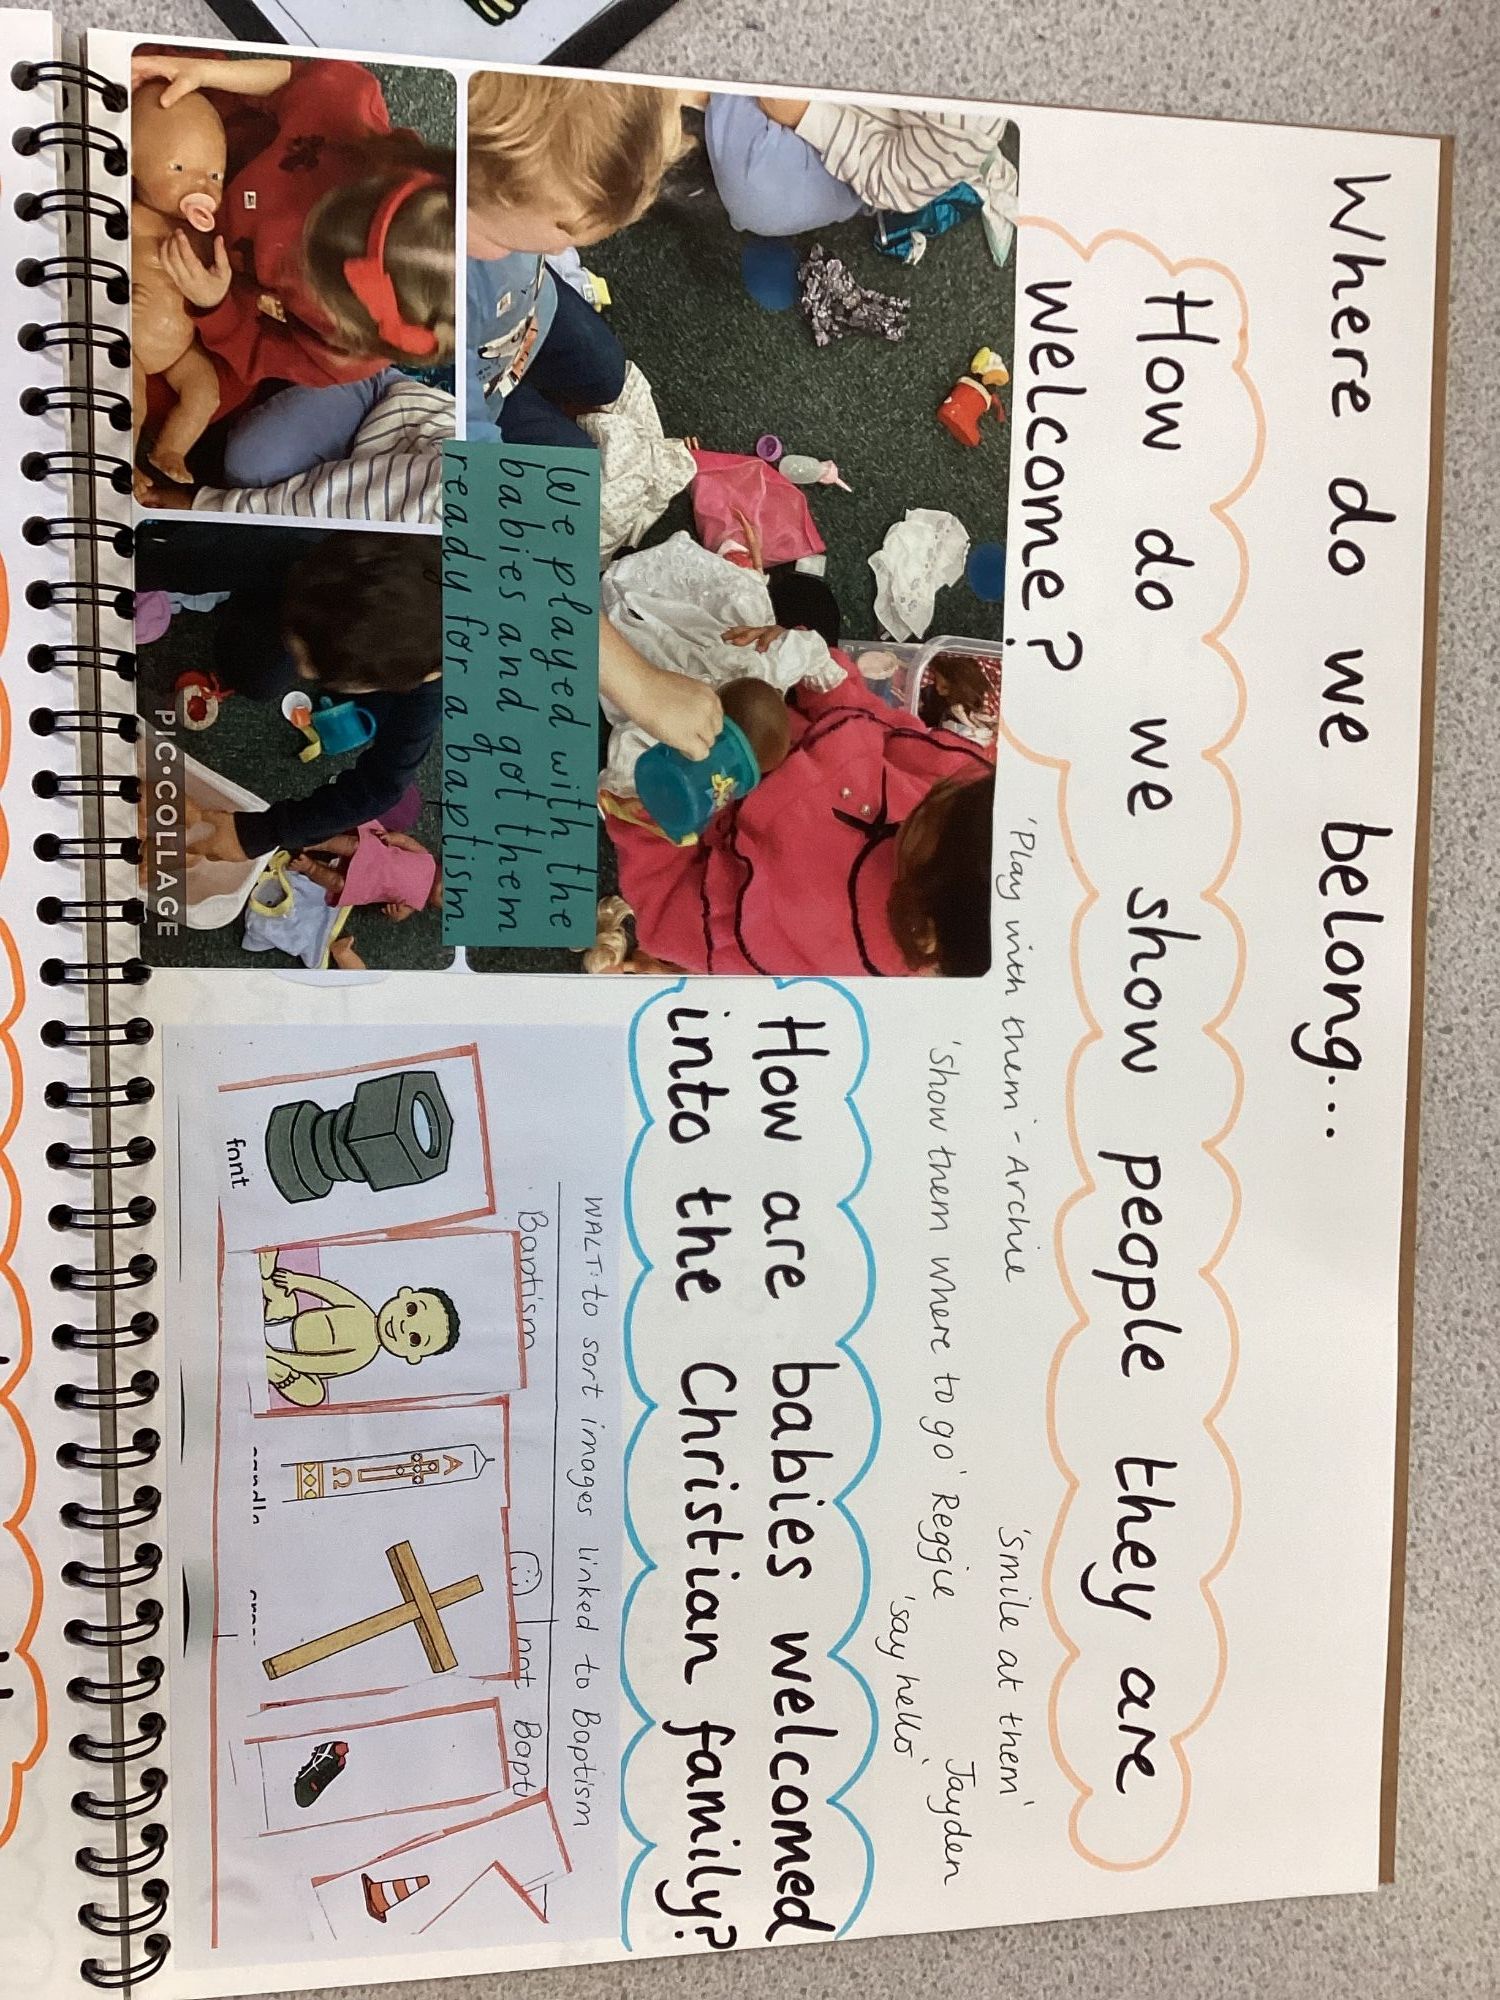 Where do we belong...
How do we show people they are
welcome?
'Play with them' - Archie
'smile at them'
Jayden
'show them where to go' Reggie
'say hello'
We played with the
babies and got them
ready for a baptism.
PIC•COLLAGE
How are babies welcomed
into the Christian family?
WALT: to sort images linked to Baptism
Baptism
not Bapti
font